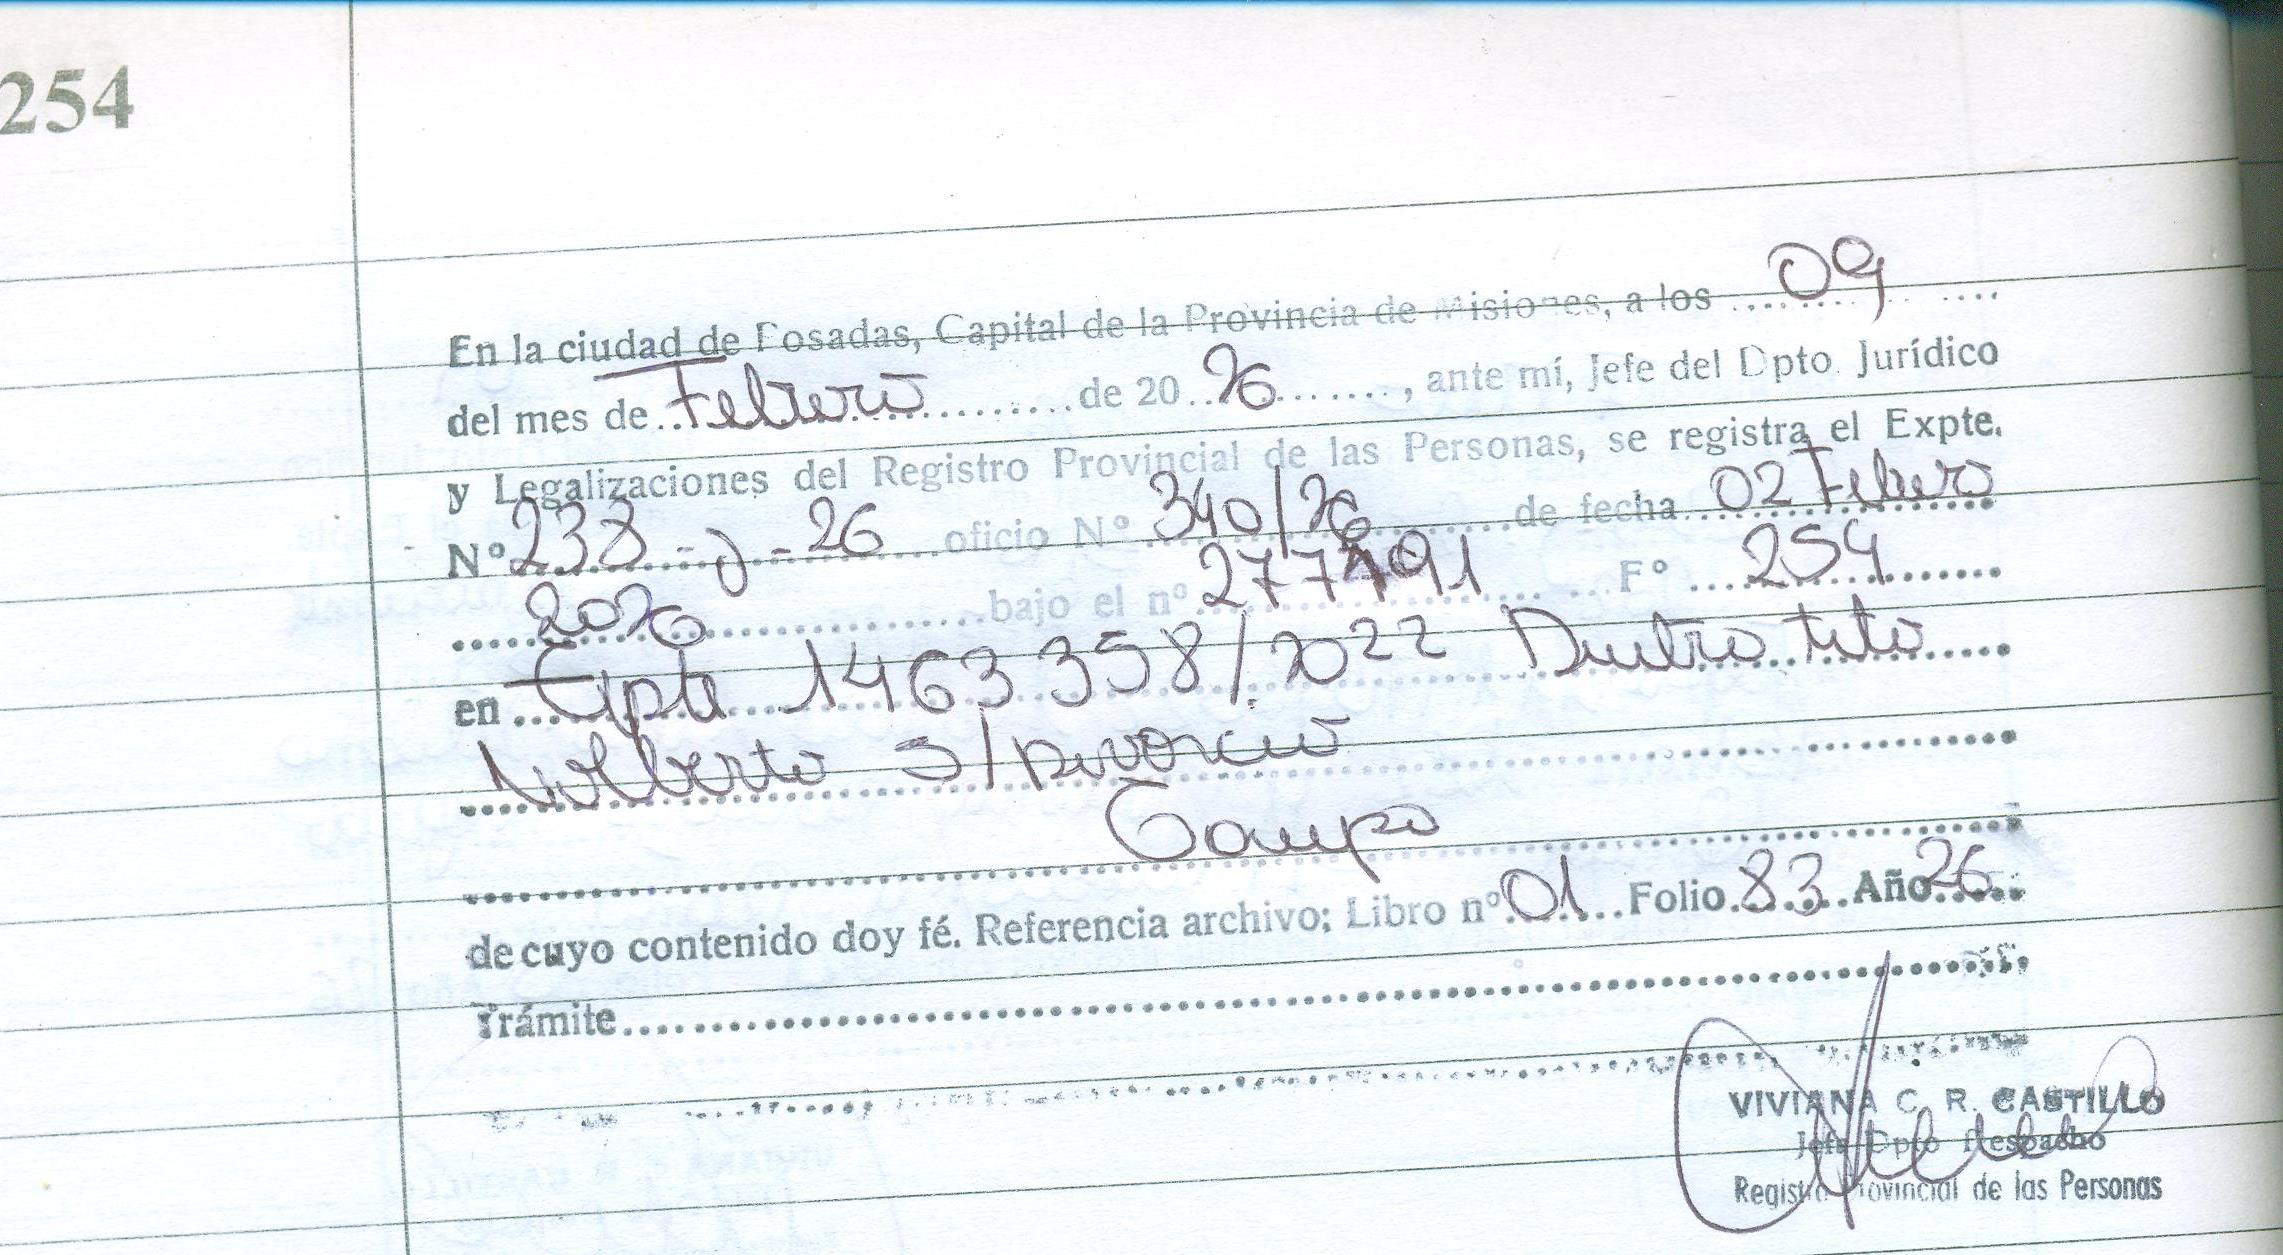 254
En la ciudad de Posadas, Capital de la Provincia de Misiones, a los 09
del mes de Febrero de 20 26, ante mí, Jefe del Dpto. Jurídico
y Legalizaciones del Registro Provincial de las Personas, se registra el Expte.
Nº 238 - J - 26 oficio Nº 340/26 de fecha 02 Febrero
2026 bajo el nº 277791 Fº 254
en Expte 1463358/2022 Dutra tito
Norberto s/ Divorcio
Campo
de cuyo contenido doy fé. Referencia archivo; Libro nº 01 Folio 83 Año 26
Trámite
VIVIANA C. R. CASTILLO
Jefe Dpto Despacho
Registro Provincial de las Personas